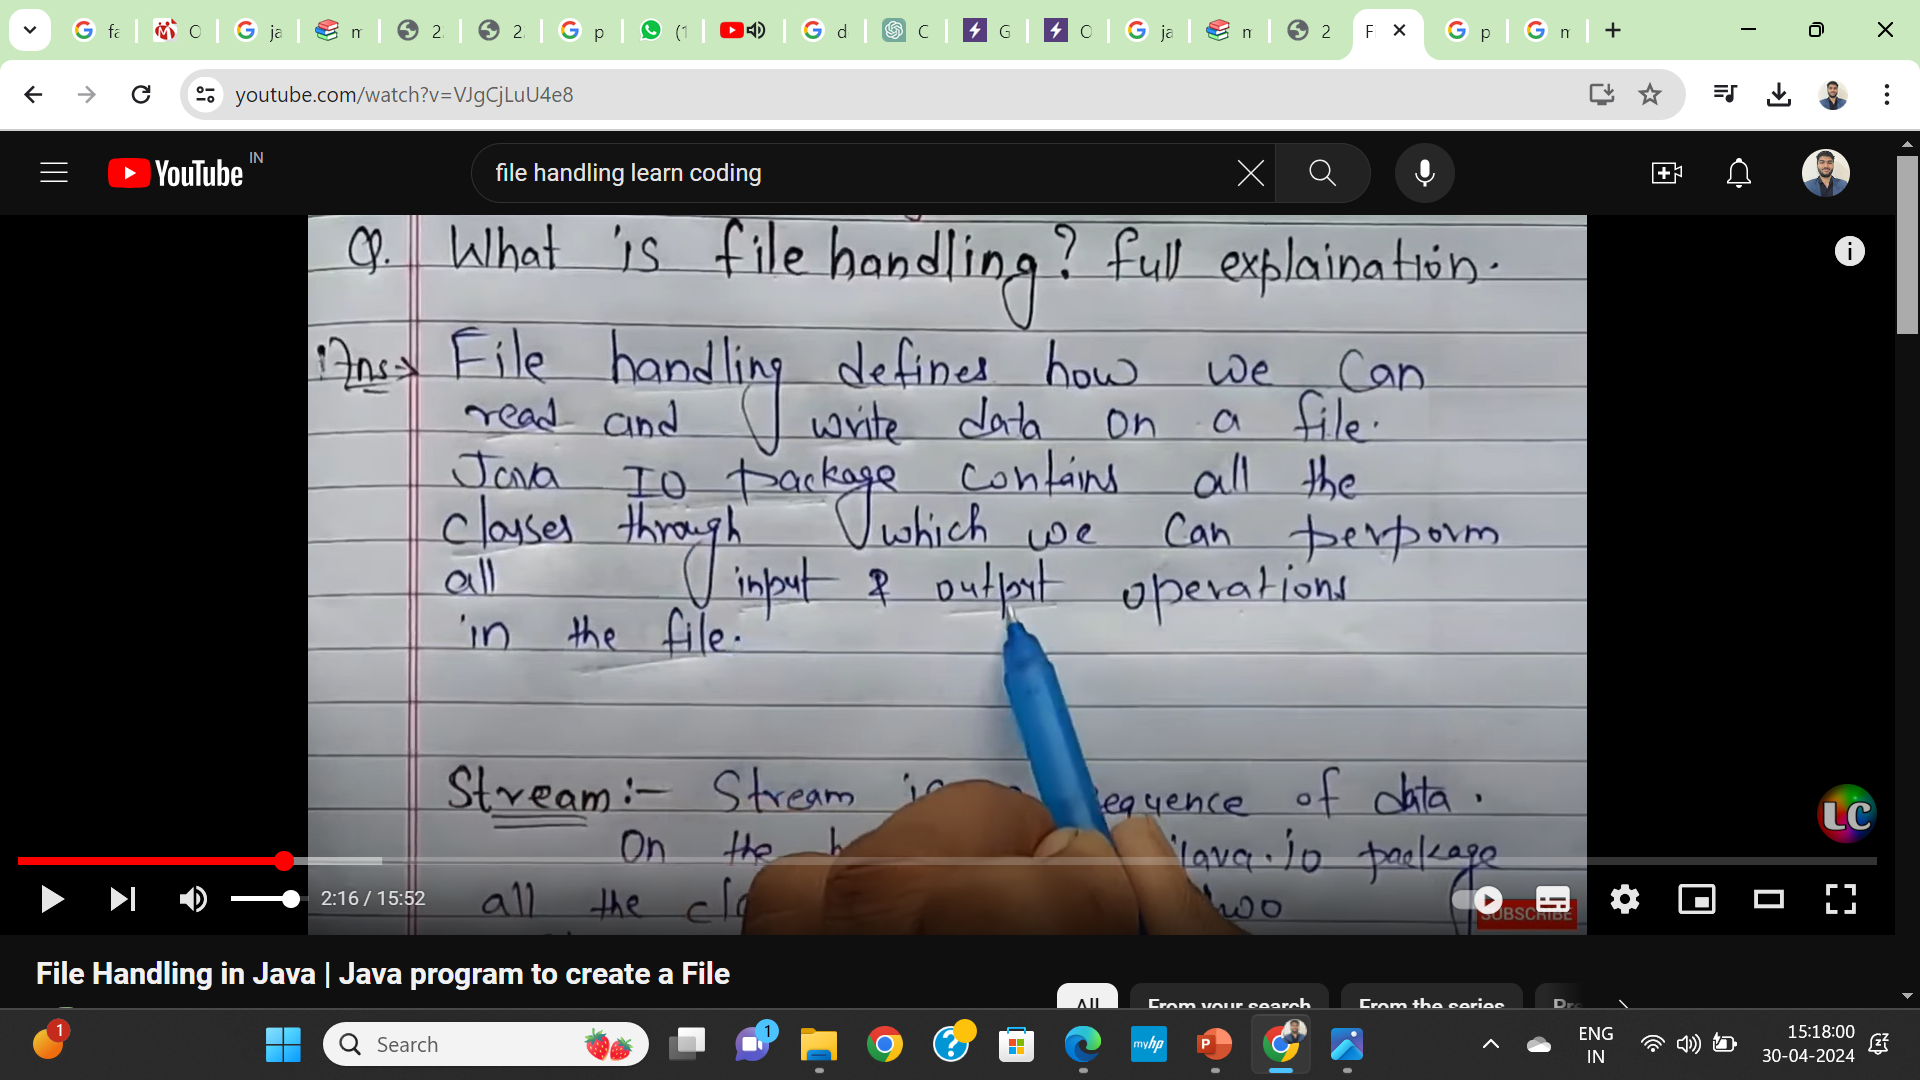 fa
O
ja
m
2
2
p
(1
d
C
G
O
ja
m
2
F
p
n
youtube.com/watch?v=VJgCjLuU4e8
YouTube IN
file handling learn coding
Q. What is file handling? full explaination.
Ans→ File handling defines how we can
read and write data on a file.
Java IO package contains all the
classes through which we can perporm
all input & output operations
in the file.
Stream :- Stream is equence of data.
On the Java.io package
all the two
LC
SUBSCRIBE
2:16 / 15:52
File Handling in Java | Java program to create a File
All From your search From the series Pre
1
Search
1
myhp
P
ENG
IN
15:18:00
30-04-2024